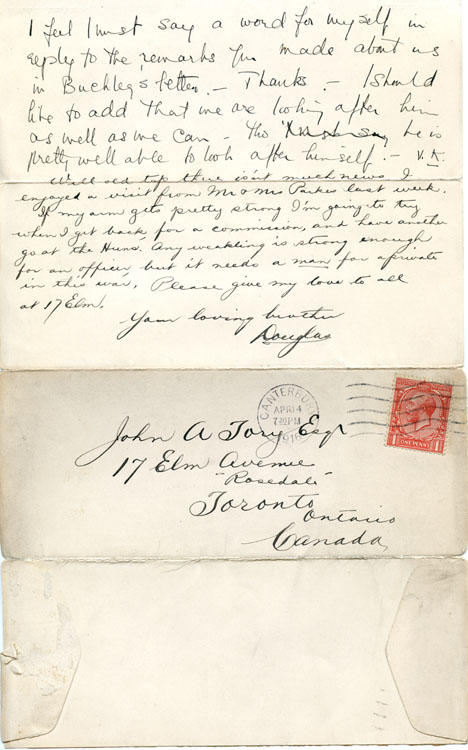 I feel I must say a word for myself in
reply to the remarks you made about us
in Buckleys letter. - Thanks. - I should
like to add that we are looking after him
as well as we can - tho' he is
pretty well able to look after himself. - V.K.
Well old top there isn't much news. I
enjoyed a visit from Mr & Mrs Parkes last week.
If my arm gets pretty strong I'm going to try
when I get back for a commission, and have another
go at the Huns. Any weakling is strong enough
for an officer, but it needs a man for a private
in this war. Please give my love to all
at 17 Elm.
Your loving brother
Douglas
CANTERBURY
APR 14
7-30 PM
1916
John A Tory Esqr
17 Elm Avenue
"Rosedale"
Toronto
Ontario
Canada
1 ONE PENNY 1